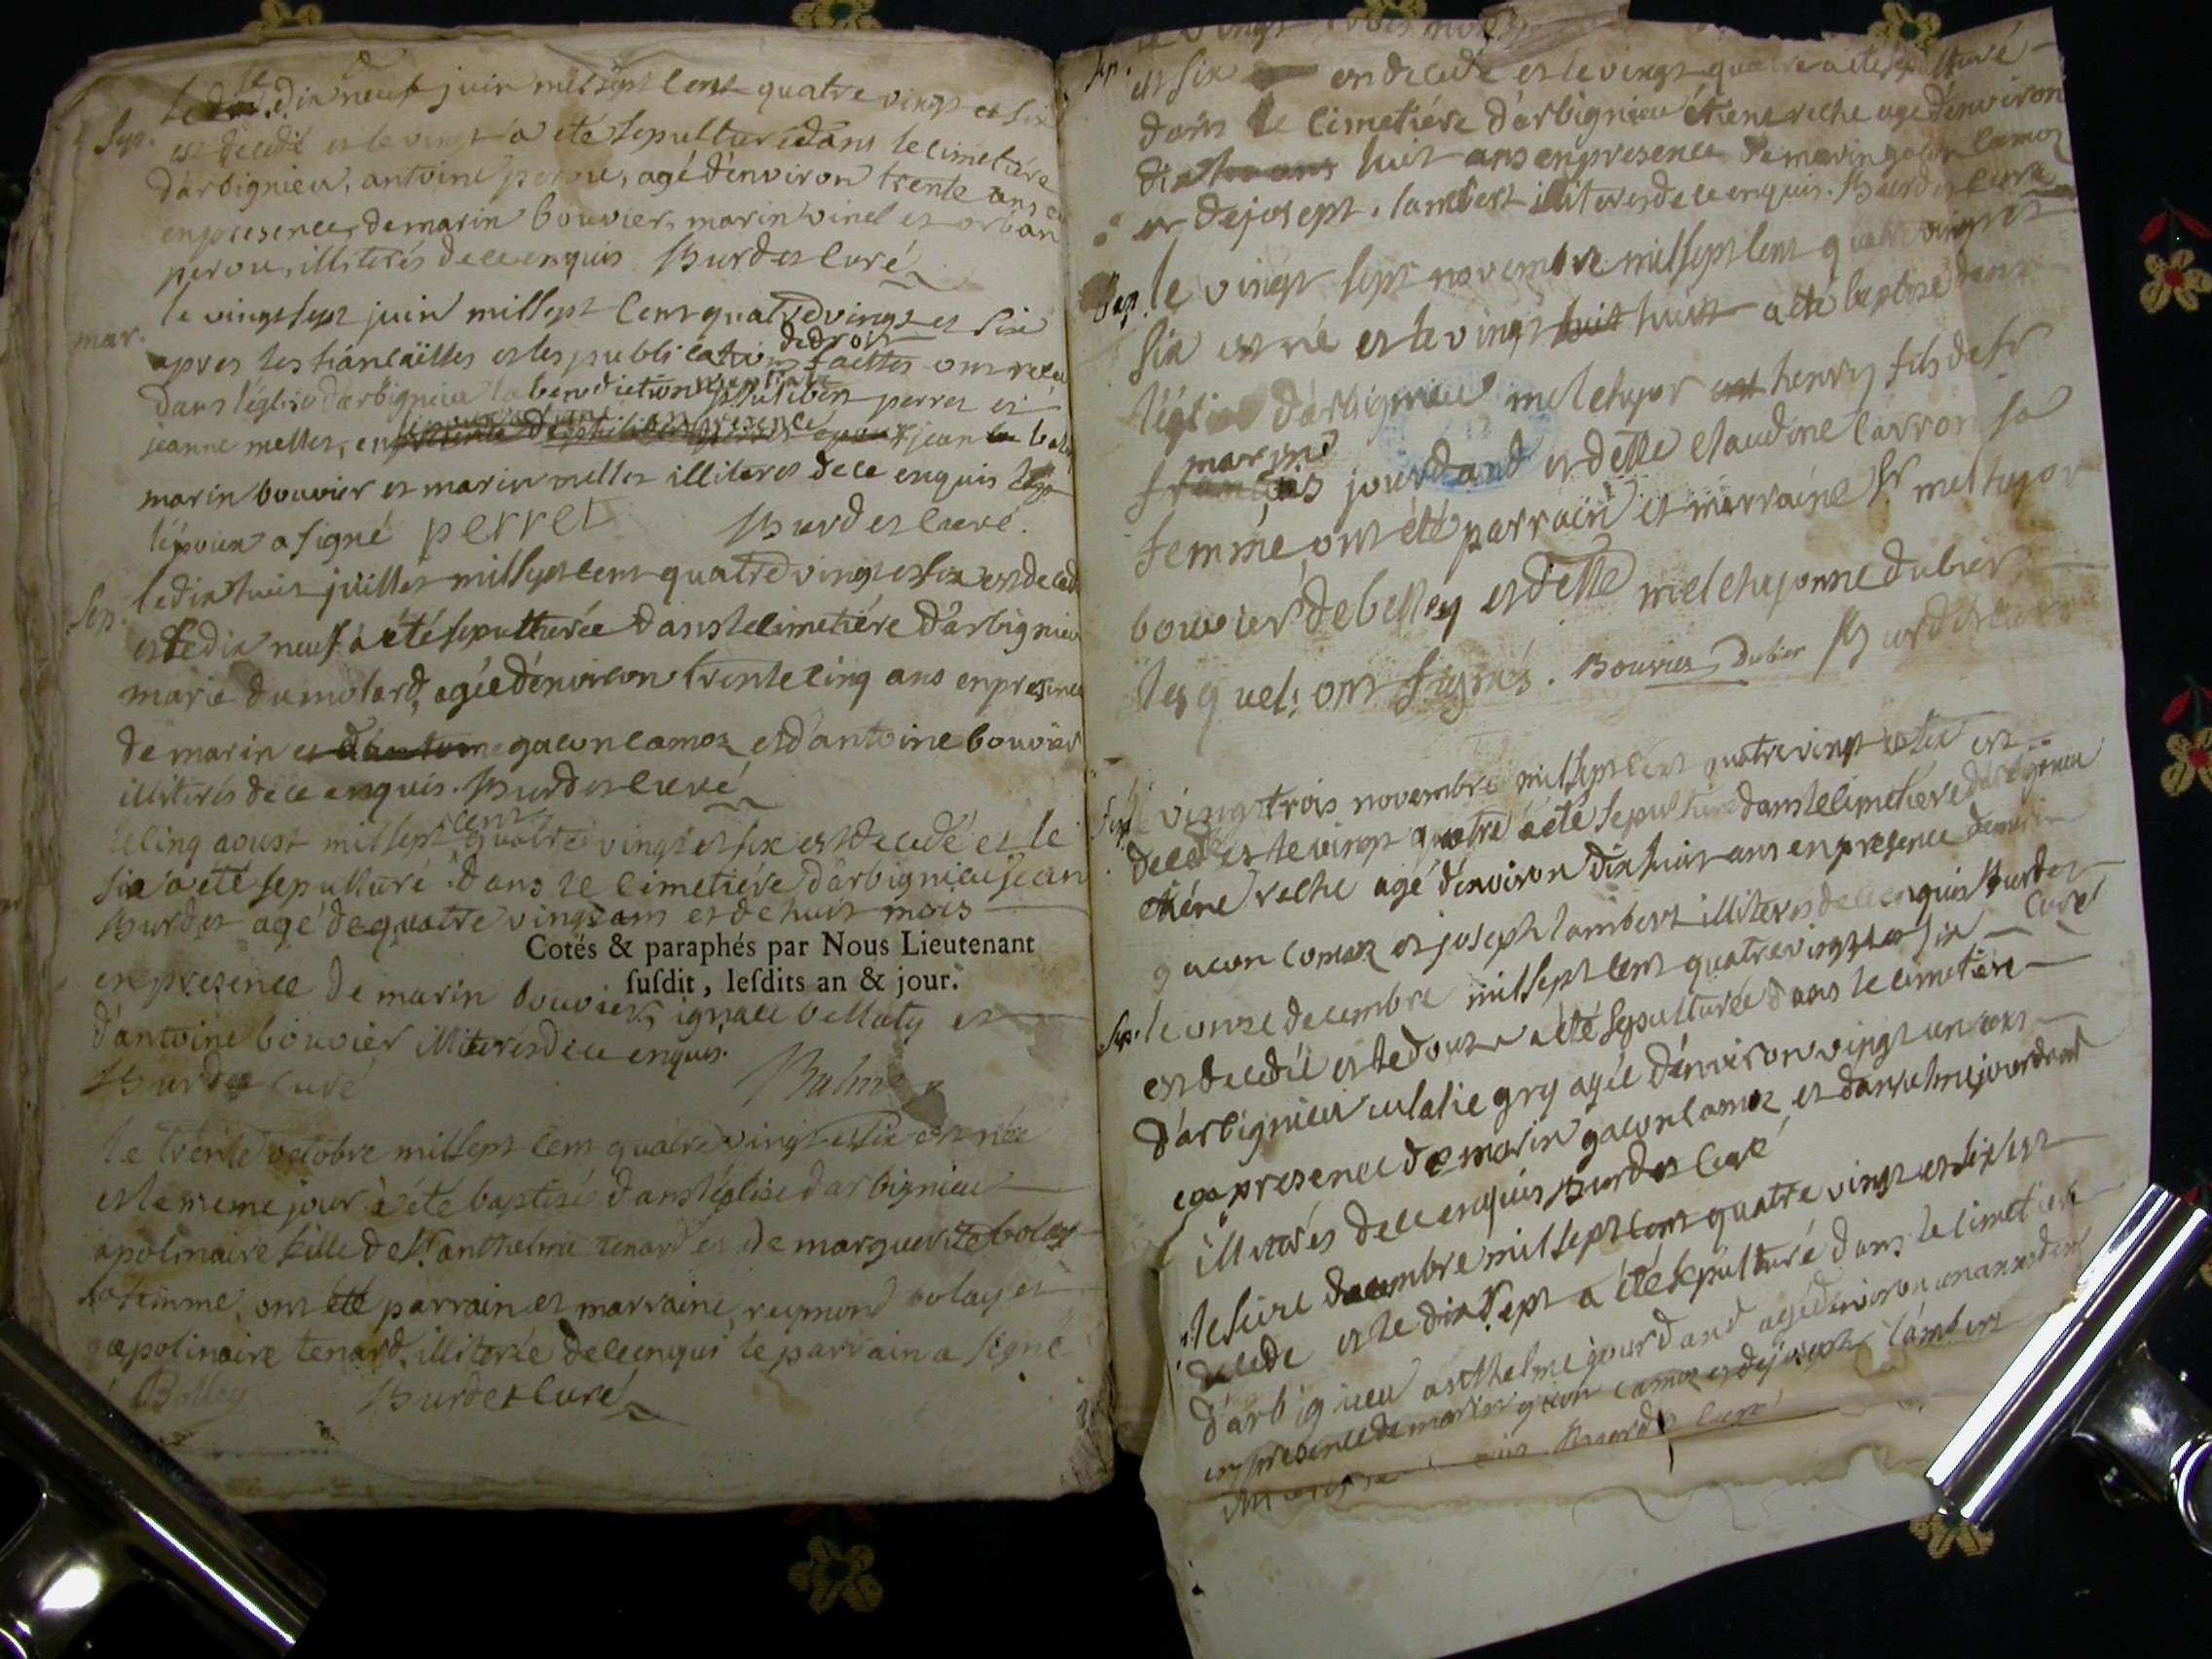 Sep. le dix neuf juin mil sept cent quatre vingt et six
est decedé et le vingt a été sepulturé dans le cimetiére
d'arbignieu, antoine perou, agé d'environ trente ans
en presence de marin bouvier, marin vinel et orban
perou, illiterés de ce enquis Burdet Curé
mar. le vingt sept juin mil sept Cent quatre vingt et six
apres les fiancailles et les publications de droit faittes ont recu
dans l'église d'arbignieu la benediction nuptiale philibert perret et
jeanne mellet, en presence jean
marin bouvier et marin mellet illiterés de ce enquis
l'époux a signé perret Burdet Curé.
Sep. le dix huit juillet mil sept cent quatre vingt et six est decedé
et le dix neuf a été sepulturée dans le cimetiére d'arbignieu
marie dumolard, agée d'environ trente cinq ans en presence
de marin et d'antoine gacon camoz et d'antoine bouvier
illiterés de ce enquis. Burdet Curé
le cinq aoust mil sept cent quatre vingt et six est decedé et le
six a été sepulturé dans le cimetiére d'arbignieu jean
Burdet agé de quatre vingt ans et de huit mois
Cotés & paraphés par Nous Lieutenant
ſuſdit, leſdits an & jour.
en presence de marin bouvier, ignace bellaty et
d'antoine bouvier illiterés de ce enquis.
Burdet Curé
le trente octobre mil sept cent quatre vingt et six est née
et le meme jour a été baptisée dans l'église d'arbignieu
apolinaire fille de Sr. anthelme tenard et de marguerite bolay
sa femme, ont été parrain et marraine, reymond bolay et
apolinaire tenard, illiterée de ce enquis le parrain a signé
Bolley Burdet Curé
Sep.
et six est decedé et le vingt quatre a été sepulturé
dans le cimetiére d'arbignieu étiene reche agé d'environ
dix huit ans en presence de marin gacon camoz
et de josept lambert illiterés de ce enquis. Burdet Curé
Bap. le vingt sept novembre mil sept cent quatre vingt et
six est né et le vingt huit huit a été baptisé dans
l'église d'arbignieu melchyor henry fils de Sr
marin
françois jourdand et de dlle claudine carron sa
femme, ont été parrain et marraine Sr melchyor
bouvier de belley et dlle melchyonne dubier
lesquels ont signés. Bouvier Dubier Burdet Curé
Sep. le vingt trois novembre mil sept cent quatre vingt et six est
decedé et le vingt quatre a été sepulturé dans le cimetiére d'arbignieu
etiéne reche agé d'environ dix huit ans en presence de marin
gacon camoz et joseph lambert illiterés de ce enquis Burdet
Curé
Sep. le onze decembre mil sept cent quatre vingt et six
est decedée et le douze a été sepulturée dans le cimetiére
d'arbignieu eulalie gry agée d'environ vingt un ans
en presence de marin gacon camoz et d'anthelme jourdand
illiterés de ce enquis Burdet Curé
le seize decembre mil sept cent quatre vingt et six est
decedé et le dix sept a été sepulturé dans le cimetiére
d'arbignieu anthelme jourdand agé d'environ un an
en presence de marin gacon camoz et de joseph lambert
Burdet Curé